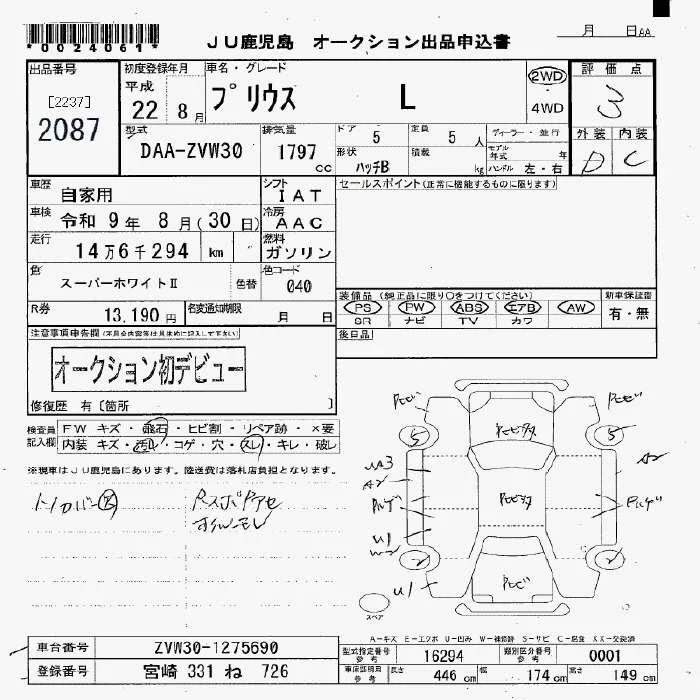 *0024061*
JU鹿児島 オークション出品申込書
月 日 AA
出品番号
[2237]
2087
初度登録年月
平成
22 8 月
車名・グレード
プリウス L
2WD
4WD
評価点
3
外装 内装
D C
型式
DAA-ZVW30
排気量
1797 cc
ドア 5
定員 5 人
形状 ハッチB
積載 kg
ディーラー・並行
モデル年式 年
ハンドル 左・右
車歴 自家用
シフト IAT
セールスポイント(正常に機能するものに限ります)
車検 令和 9年 8月(30日)
冷房 AAC
走行 14万6千294 km
燃料 ガソリン
色 スーパーホワイトII 色替
色コード 040
R券 13,190円
名変通知期限 月 日
装備品(純正品に限り○をつけてください)
PS PW ABS エアB AW
SR ナビ TV カワ
新車保証書
有・無
後日品
注意事項申告欄
オークション初デビュー
修復歴 有 [箇所 ]
検査員記入欄
FW キズ・飛石・ヒビ割・リペア跡・×要
内装 キズ・汚れ・コゲ・穴・スレ・キレ・破レ
※現車はJU鹿児島にあります。陸送費は落札店負担となります。
5 5
A2
A2
U1
2 2
U1
スペア
A-キズ E-エクボ U-凹み W-補修跡 S-サビ C-腐食 XX-交換済
車台番号 ZVW30-1275690
登録番号 宮崎 331 ね 726
型式指定番号 参考 16294
類別区分番号 参考 0001
車体寸法 参考 長さ 446 cm 幅 174 cm 高さ 149 cm